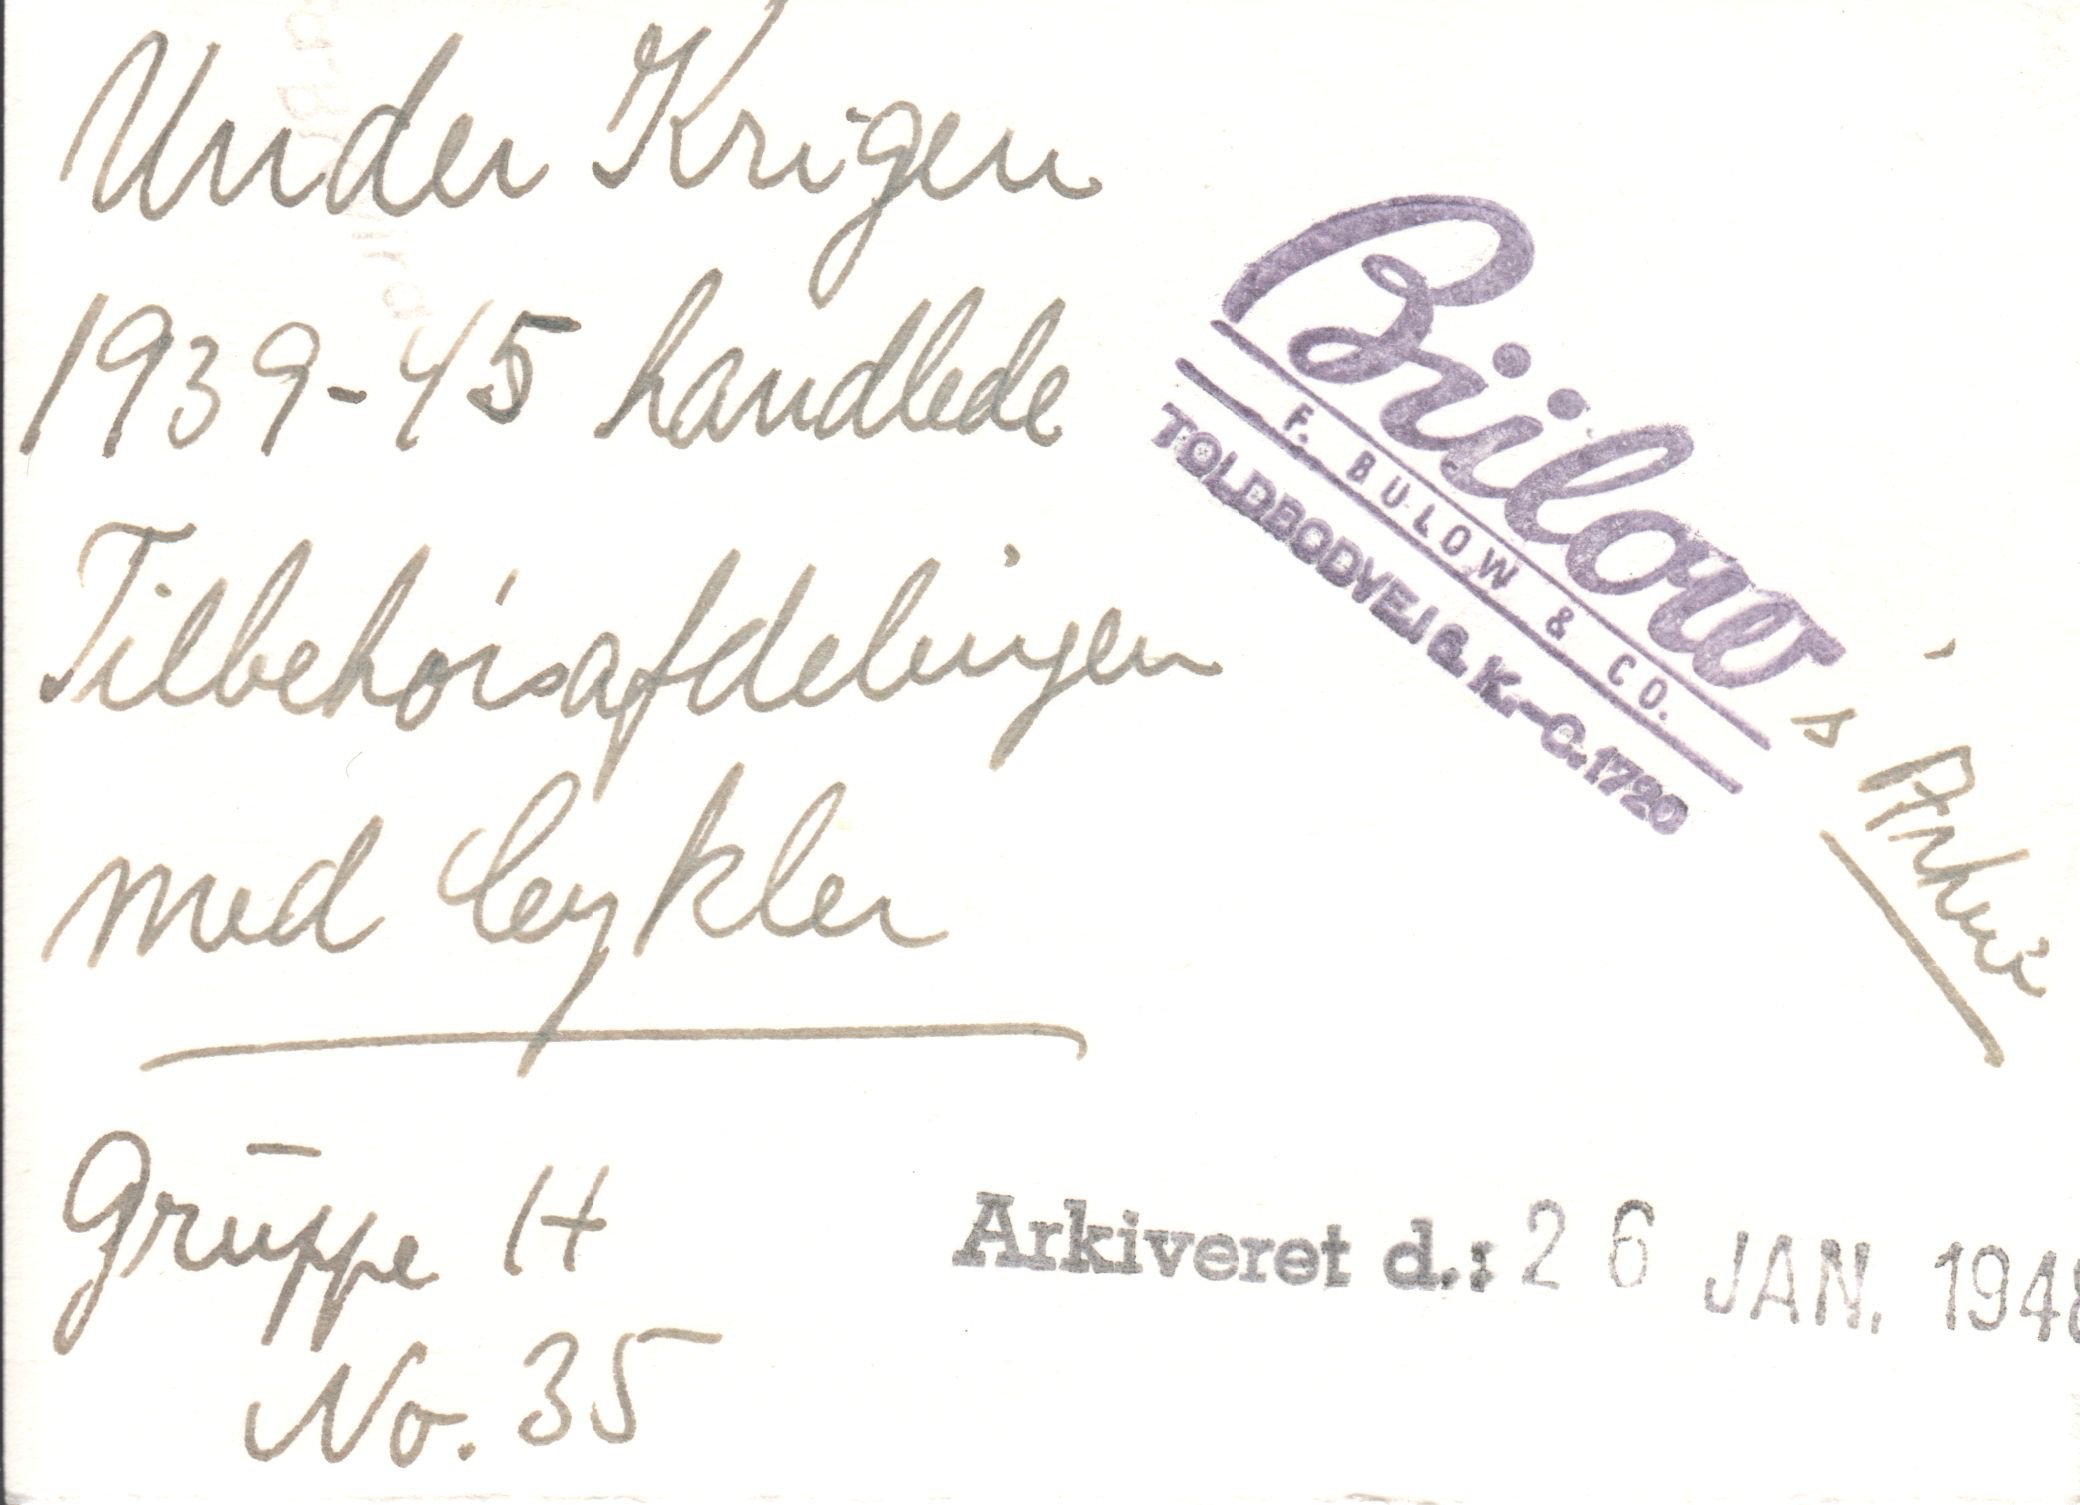 Under Krigen
1939-45 handlede
Tilbehørsafdelingen
med Cykler
Bülow
F. BULOW & CO.
TOLDBODVEJ 8. K.-C. 1720
's Arkiv
Gruppe H
No. 35
Arkiveret d.: 26 JAN. 1948